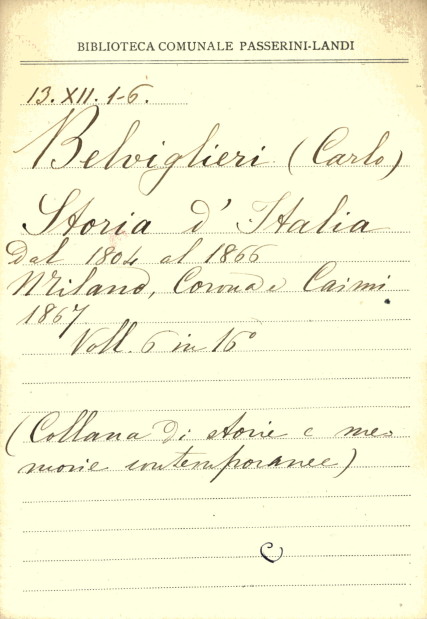 BIBLIOTECA COMUNALE PASSERINI-LANDI
13. XII. 1-6.
Belviglieri (Carlo)
Storia d' Italia
Dal 1804 al 1866
Milano, Corona e Caimi
1867
Voll. 6 in 16°
(Collana di storie e me-
morie contemporanee)
C